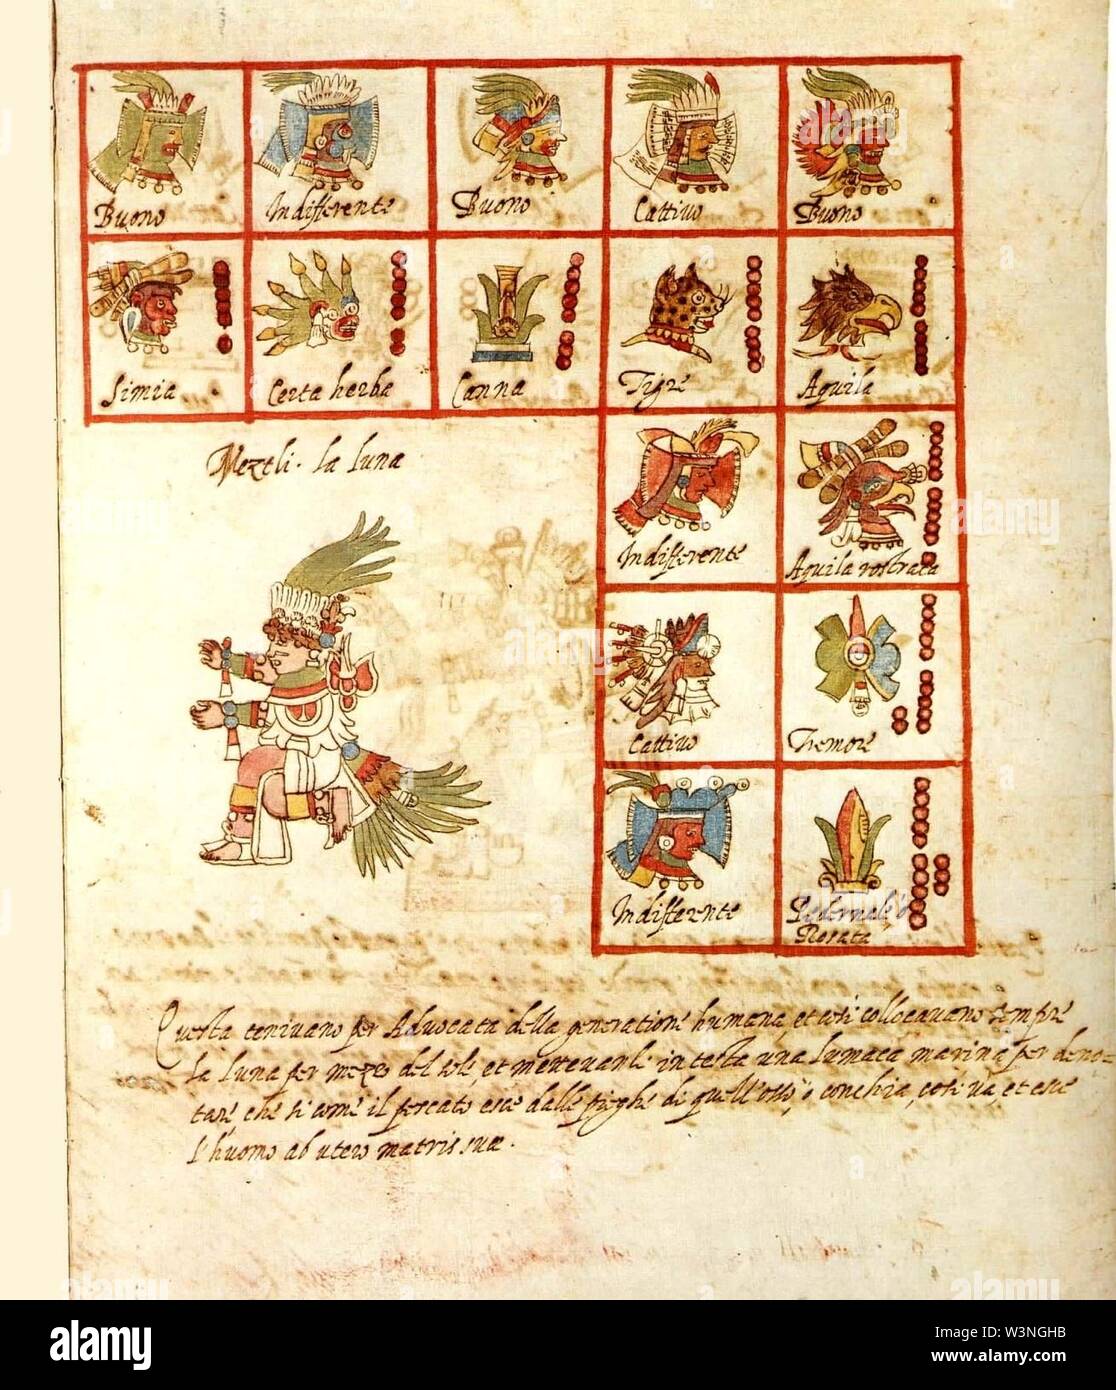 Buono
Indifferente
Buono
Cattivo
Buono
Simia
Certa herba
Canna
Tigre
Aquila
Meztli. la luna
Indifferente
Aquila rostrata
Cattivo
Tremore
Indifferente
Pedernale ò
Rosata
Questa tenivano per Advocata della generatione humana, et cosi collocavano sempre
la luna per mezo del sole, et mettevanli in testa una lumaca marina per deno=
tare, che si come il pescato esce dalle pieghe di quell'osso, ò conchia, cosi và, et esce
l'huomo ab utero matris suæ.
alamy
Image ID: W3NGHB
www.alamy.com